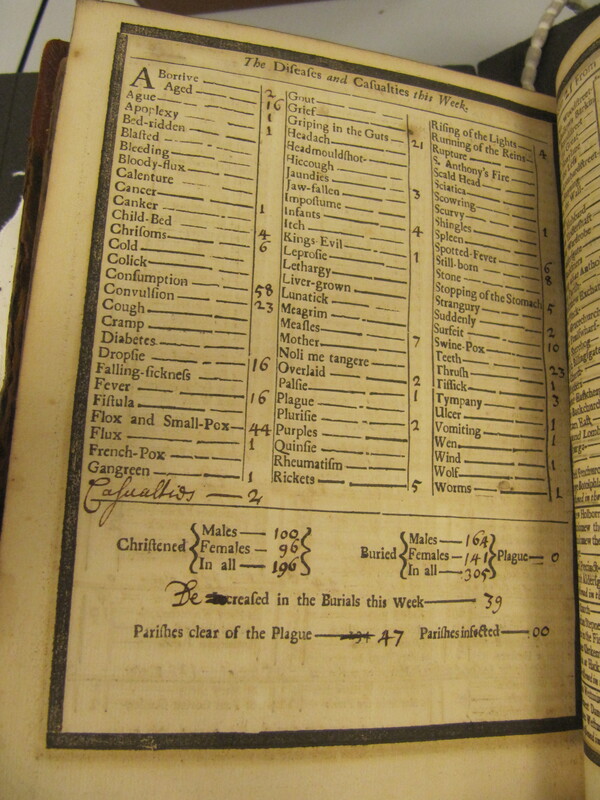 The Diſeaſes and Caſualties this Week.
ABortive — 2
Aged — 16
Ague — 1
Apoplexy — 1
Bed-ridden —
Blaſted —
Bleeding —
Bloody-flux —
Calenture —
Cancer — 1
Canker —
Child-Bed — 4
Chriſoms — 6
Cold —
Colick —
Conſumption — 58
Convulſion — 23
Cough —
Cramp —
Diabetes —
Dropſie — 16
Falling-ſickneſs —
Fever — 16
Fiſtula —
Flox and Small-Pox — 44
Flux — 1
French-Pox —
Gangreen — 1
Caſualties — 2
Gout —
Grief —
Griping in the Guts — 21
Headach —
Headmouldſhot —
Hiccough —
Jaundies — 3
Jaw-fallen —
Impoſtume —
Infants — 4
Itch —
Kings-Evil — 1
Leproſie —
Lethargy —
Liver-grown —
Lunatick —
Meagrim —
Meaſles — 7
Mother —
Noli me tangere —
Overlaid — 2
Palſie — 1
Plague —
Pluriſie — 2
Purples —
Quinſie —
Rheumatiſm —
Rickets — 5
Riſing of the Lights — 4
Running of the Reins —
Rupture —
S. Anthony's Fire —
Scald Head —
Sciatica —
Scowring —
Scurvy — 1
Shingles —
Spleen —
Spotted-Fever — 6
Still-born — 8
Stone —
Stopping of the Stomach 5
Strangury —
Suddenly — 2
Surfeit — 10
Swine-Pox —
Teeth — 23
Thruſh — 1
Tiſſick — 3
Tympany —
Ulcer — 1
Vomiting — 1
Wen —
Wind — 1
Wolf —
Worms — 1
Chriſtened { Males — 100 Females — 96 In all — 196 }
Buried { Males — 164 Females — 141 In all — 305 } Plague — 0
Decreaſed in the Burials this Week — 39
Pariſhes clear of the Plague — 47 Pariſhes infected — 00